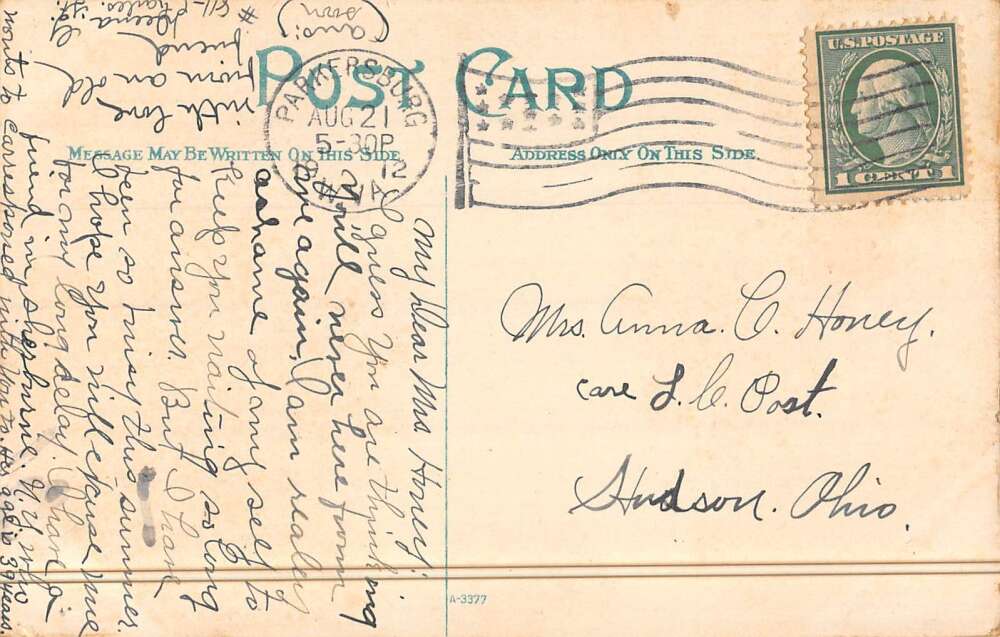 POST CARD
MESSAGE MAY BE WRITTEN ON THIS SIDE
ADDRESS ONLY ON THIS SIDE
PARKERSBURG
AUG 21
5-30P
12
U.S. POSTAGE
1 CENT 1
Mrs. Anna. C. Honey.
care L. C. Post.
Hudson. Ohio.
A-3377
My Dear Mrs Honey:
I guess you are thinking
you'll never here from
me again, I am realey
ashame of my self to
keep you waiting so long
for answer. But I have
been so busy this summer.
I hope you will excuse me
for my long delay. I have a
friend in sherburne, N.Y. who
wants to carresponed with you to. Her age is 39 years.
with love
from an old
friend